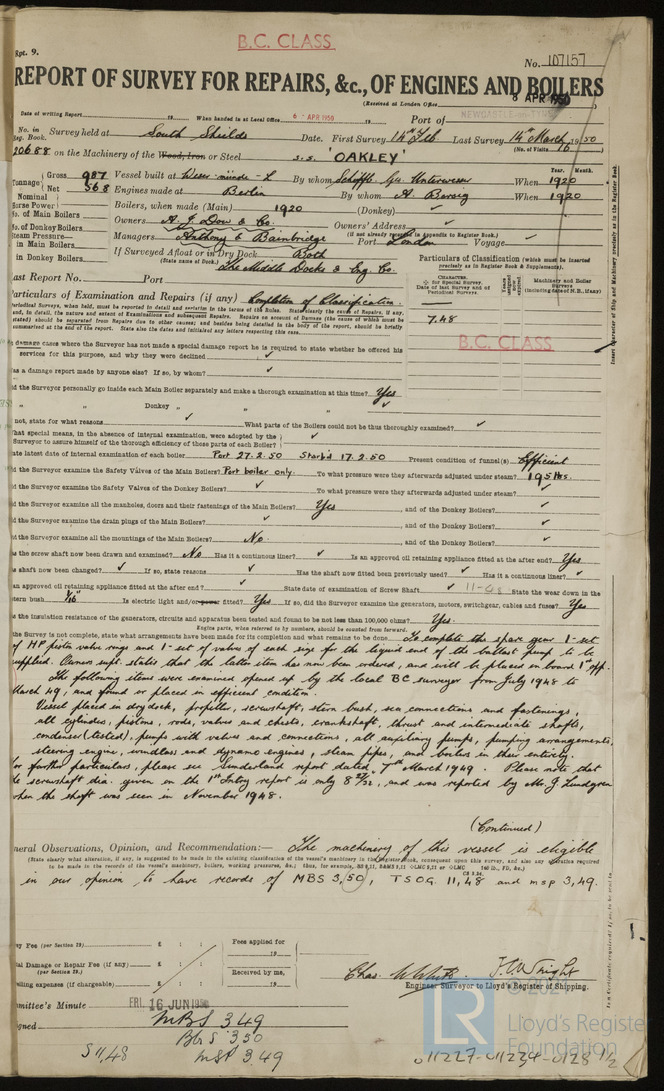 B.C. CLASS
Rpt. 9.
No. 107157
REPORT OF SURVEY FOR REPAIRS, &c., OF ENGINES AND BOILERS
(Received at London Office 8 APR 1950)
Date of writing Report 19 When handed in at Local Office 6 APR 1950 19 Port of NEWCASTLE-ON-TYNE
No. in Reg. Book. Survey held at South Shields Date. First Survey 14th Feb. Last Survey 14th March 1950
(No. of Visits 16)
20688 on the Machinery of the Wood, Iron or Steel s.s. 'OAKLEY'
Tonnage Gross 987 Vessel built at Weser-münde-L By whom Schiffb. Ges. Unterweser When 1920
Year. Month.
Net 568 Engines made at Berlin By whom A. Borsig When 1920
Nominal Horse Power
No. of Main Boilers Boilers, when made (Main) 1920 (Donkey) ✓
No. of Donkey Boilers Owners A. J. Dow & Co. Owners' Address ✓
(If not already recorded in Appendix to Register Book.)
Steam Pressure— in Main Boilers Managers Anthony & Bainbridge Port London Voyage ✓
in Donkey Boilers If Surveyed Afloat or in Dry Dock Both
(State name of Dock.) The Middle Docks & Eng. Co.
Particulars of Classification (which must be inserted precisely as in Register Book & Supplements).
Last Report No. Port
Particulars of Examination and Repairs (if any) Completion of Classification.
CHARACTER. ✠ for Special Survey. Date of last Survey and of Periodical Surveys.
Machinery and Boiler Surveys (including date of N.B., if any)
7.48
B.C. CLASS
damage cases where the Surveyor has not made a special damage report he is required to state whether he offered his
services for this purpose, and why they were declined ✓
as a damage report made by anyone else? If so, by whom? ✓
d the Surveyor personally go inside each Main Boiler separately and make a thorough examination at this time? Yes
„ „ Donkey „ „ „ ✓
not, state for what reasons ✓ What parts of the Boilers could not be thus thoroughly examined? ✓
hat special means, in the absence of internal examination, were adopted by the
Surveyor to assure himself of the thorough efficiency of those parts of each Boiler? ✓
ate latest date of internal examination of each boiler Port 27.2.50 Starb'd 17.2.50 Present condition of funnel(s) Efficient
d the Surveyor examine the Safety Valves of the Main Boilers? Port boiler only. To what pressure were they afterwards adjusted under steam? 195 lbs.
d the Surveyor examine the Safety Valves of the Donkey Boilers? ✓ To what pressure were they afterwards adjusted under steam? ✓
d the Surveyor examine all the manholes, doors and their fastenings of the Main Boilers? Yes, and of the Donkey Boilers? ✓
d the Surveyor examine the drain plugs of the Main Boilers? ✓, and of the Donkey Boilers? ✓
d the Surveyor examine all the mountings of the Main Boilers? No., and of the Donkey Boilers? ✓
as the screw shaft now been drawn and examined? No Has it a continuous liner? ✓ Is an approved oil retaining appliance fitted at the after end? Yes
s shaft now been changed? ✓ If so, state reasons ✓ Has the shaft now fitted been previously used? ✓ Has it a continuous liner? ✓
an approved oil retaining appliance fitted at the after end? ✓ State date of examination of Screw Shaft ✓ State the wear down in the
stern bush Is electric light and/or power fitted? Yes If so, did the Surveyor examine the generators, motors, switchgear, cables and fuses? Yes
s the insulation resistance of the generators, circuits and apparatus been tested and found to be not less than 100,000 ohms? Yes.
Engine parts, when referred to by numbers, should be counted from forward.
the Survey is not complete, state what arrangements have been made for its completion and what remains to be done To complete the spare gear 1-set
of HP piston valve rings and 1-set of valves of each size for the liquid end of the ballast pump to be
supplied. Owners supt. states that the latter item has now been ordered, and will be placed on board 1st opp.
The following items were examined opened up by the local BC surveyor from July 1948 to
March 49, and found or placed in efficient condition.
Vessel placed in dry dock, propeller, screwshaft, stern bush, sea connections and fastenings,
all cylinders, pistons, rods, valves and chests, crankshaft, thrust and intermediate shafts,
condenser (tested), pumps with valves and connections, all auxiliary pumps, pumping arrangements,
steering engine, windlass and dynamo engines, steam pipes, and boilers in their entirety.
For further particulars, please see Sunderland report dated 7th March 1949. Please note that
the screwshaft dia. given on the 1st Entry report is only 8 27/32, and was reported by Mr. J. Lundgren
when the shaft was seen in November 1948.
(Continued)
General Observations, Opinion, and Recommendation:— The machinery of this vessel is eligible
(State clearly what alteration, if any, is suggested to be made in the existing classification of the vessel's machinery in the Register Book, consequent upon this survey, and also any addition required
to be made in the records of the vessel's machinery, boilers, working pressures, &c.
in our opinion to have records of MBS 3,50, TSOG. 11,48 and msp 3,49.
ey Fee (per Section 29) £ : : Fees applied for
19
ial Damage or Repair Fee (if any) £ : :
(per Section 29.)
Received by me,
velling expenses (if chargeable) £ : : 19
Chas. W. White. F.C. Wright
Engineer Surveyor to Lloyd's Register of Shipping.
mmittee's Minute FRI. 16 JUN 1950
MBS 3.49
signed
Bbs S 3.50
S 11,48 MSP 3.49
LR
Lloyd's Register
Foundation
011227-011234-0128 1/2